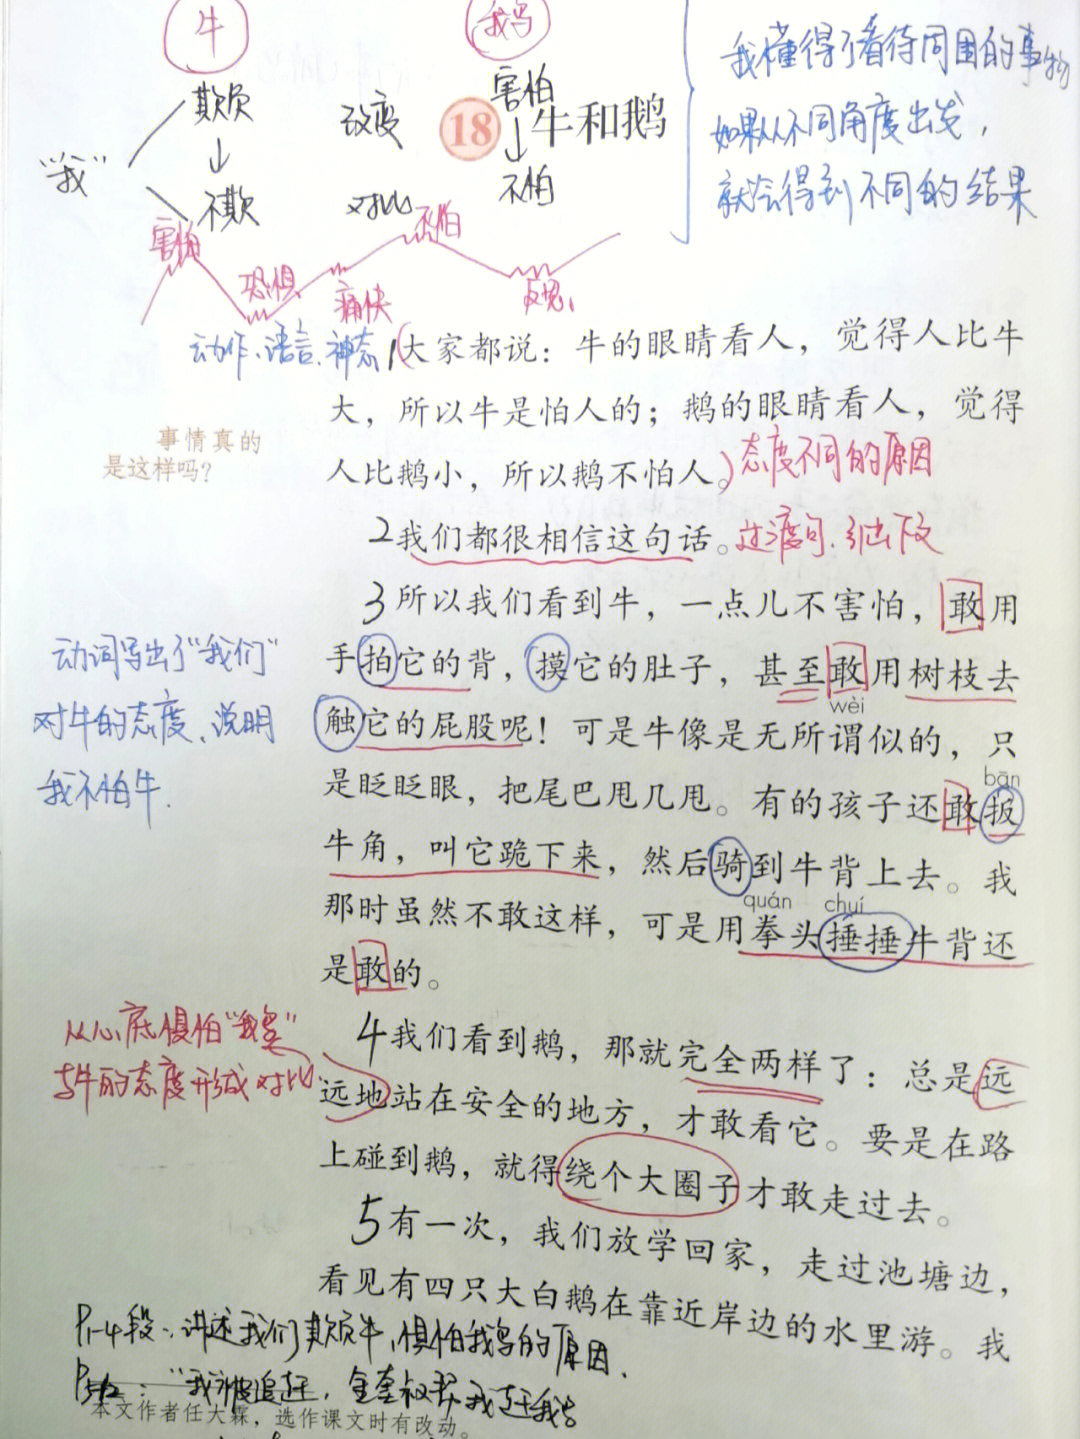 牛
鹅
我懂得了看待周围的事物
如果从不同角度出发，
就会得到不同的结果
欺负
↓
不欺
改变
对比
害怕
↓
不怕
“我”
18 牛和鹅
害怕
恐惧
痛快
不怕
动作、语言、神态
1（大家都说：牛的眼睛看人，觉得人比牛
大，所以牛是怕人的；鹅的眼睛看人，觉得
人比鹅小，所以鹅不怕人。）态度不同的原因
事情真的
是这样吗？
2我们都很相信这句话。过渡句.引出下文
3所以我们看到牛，一点儿不害怕，敢用
手拍它的背，摸它的肚子，甚至敢用树枝去
wèi
触它的屁股呢！可是牛像是无所谓似的，只
bān
是眨眨眼，把尾巴甩几甩。有的孩子还敢扳
牛角，叫它跪下来，然后骑到牛背上去。我
quán chuí
那时虽然不敢这样，可是用拳头捶捶牛背还
是敢的。
动词写出了“我们”
对牛的态度、说明
我不怕牛.
4我们看到鹅，那就完全两样了：总是远
远地站在安全的地方，才敢看它。要是在路
上碰到鹅，就得绕个大圈子才敢走过去。
从心底惧怕“鹅”
与牛的态度形成对比.
5有一次，我们放学回家，走过池塘边，
看见有四只大白鹅在靠近岸边的水里游。我
P1-4段：讲述我们欺负牛，惧怕鹅的原因.
“我”被追赶，金奎叔帮我赶鹅
本文作者任大霖，选作课文时有改动。